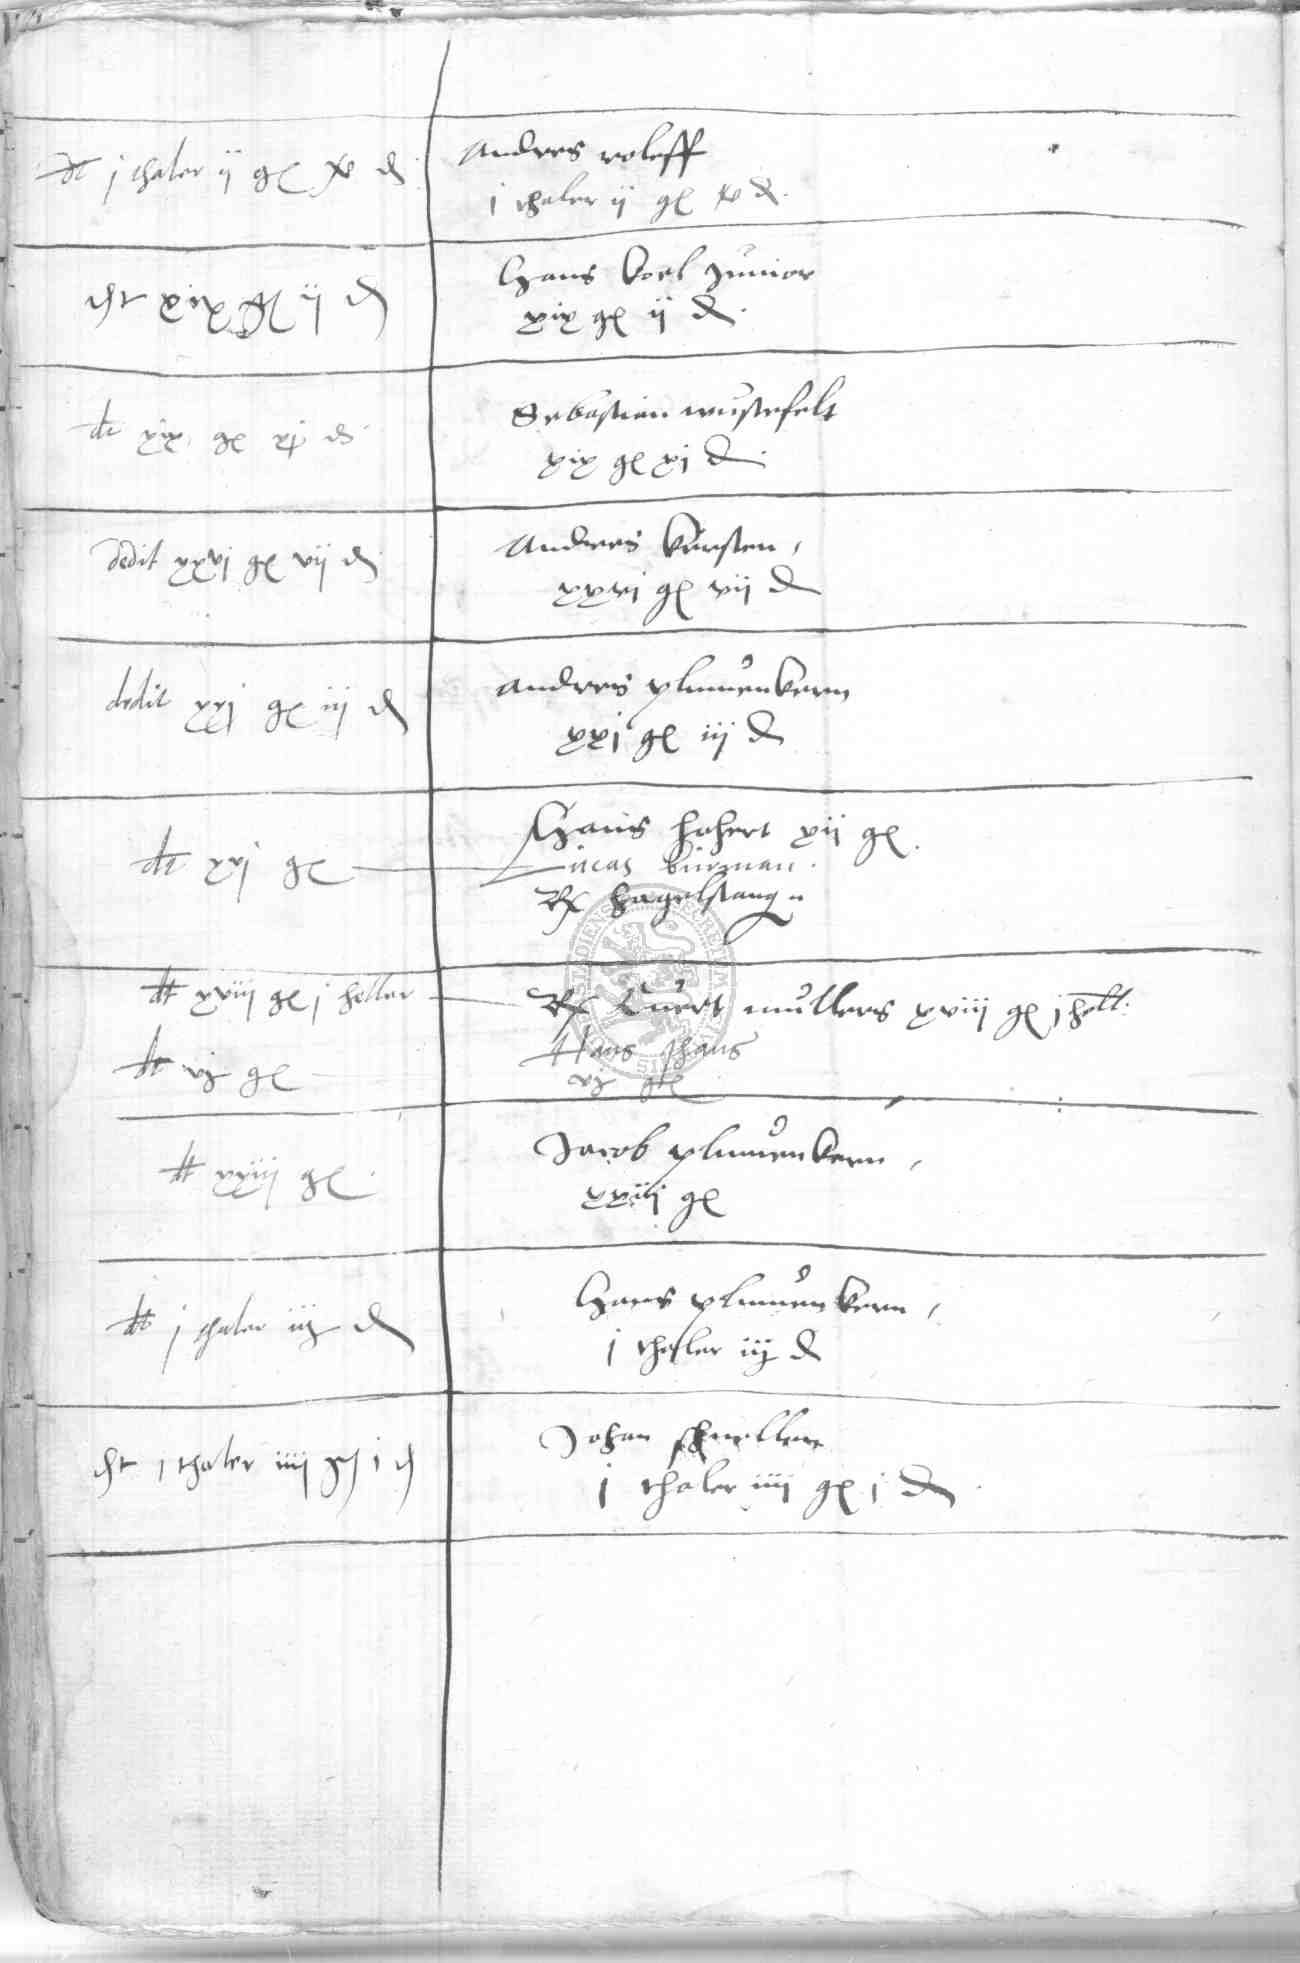 dt j thaler ij gl x d
Andres roleff
j thaler ij gl x d.
dt xix gl ij d
Hans koel Junior
xix gl ij d.
dt xix gl xj d.
Sebastian wustefelt
xix gl xj d.
dedit xxvj gl vij d
Andres kursten,
xxvj gl vij d
dedit xxj gl iij d
Andres plumenkern
xxj gl iij d
dt xxj gl
Hans hohert xij gl.
Lucas burman.
Rx hagelstang
dt xviij gl j heller
Rx Curt mullers xviij gl j hell.
dt vj gl
Hans
vj gl
dt xxiij gl.
Jacob plumenkern,
xxiij gl
dt j thaler iij d
Hans plumenkern,
j thaler iij d
dt j thaler iiij gl j d
Johan
j thaler iiij gl j d